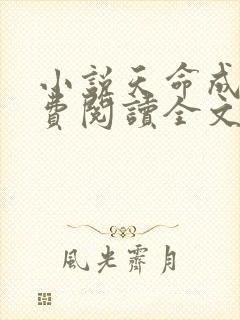 小説天命成
費閱讀全文
風光霽月